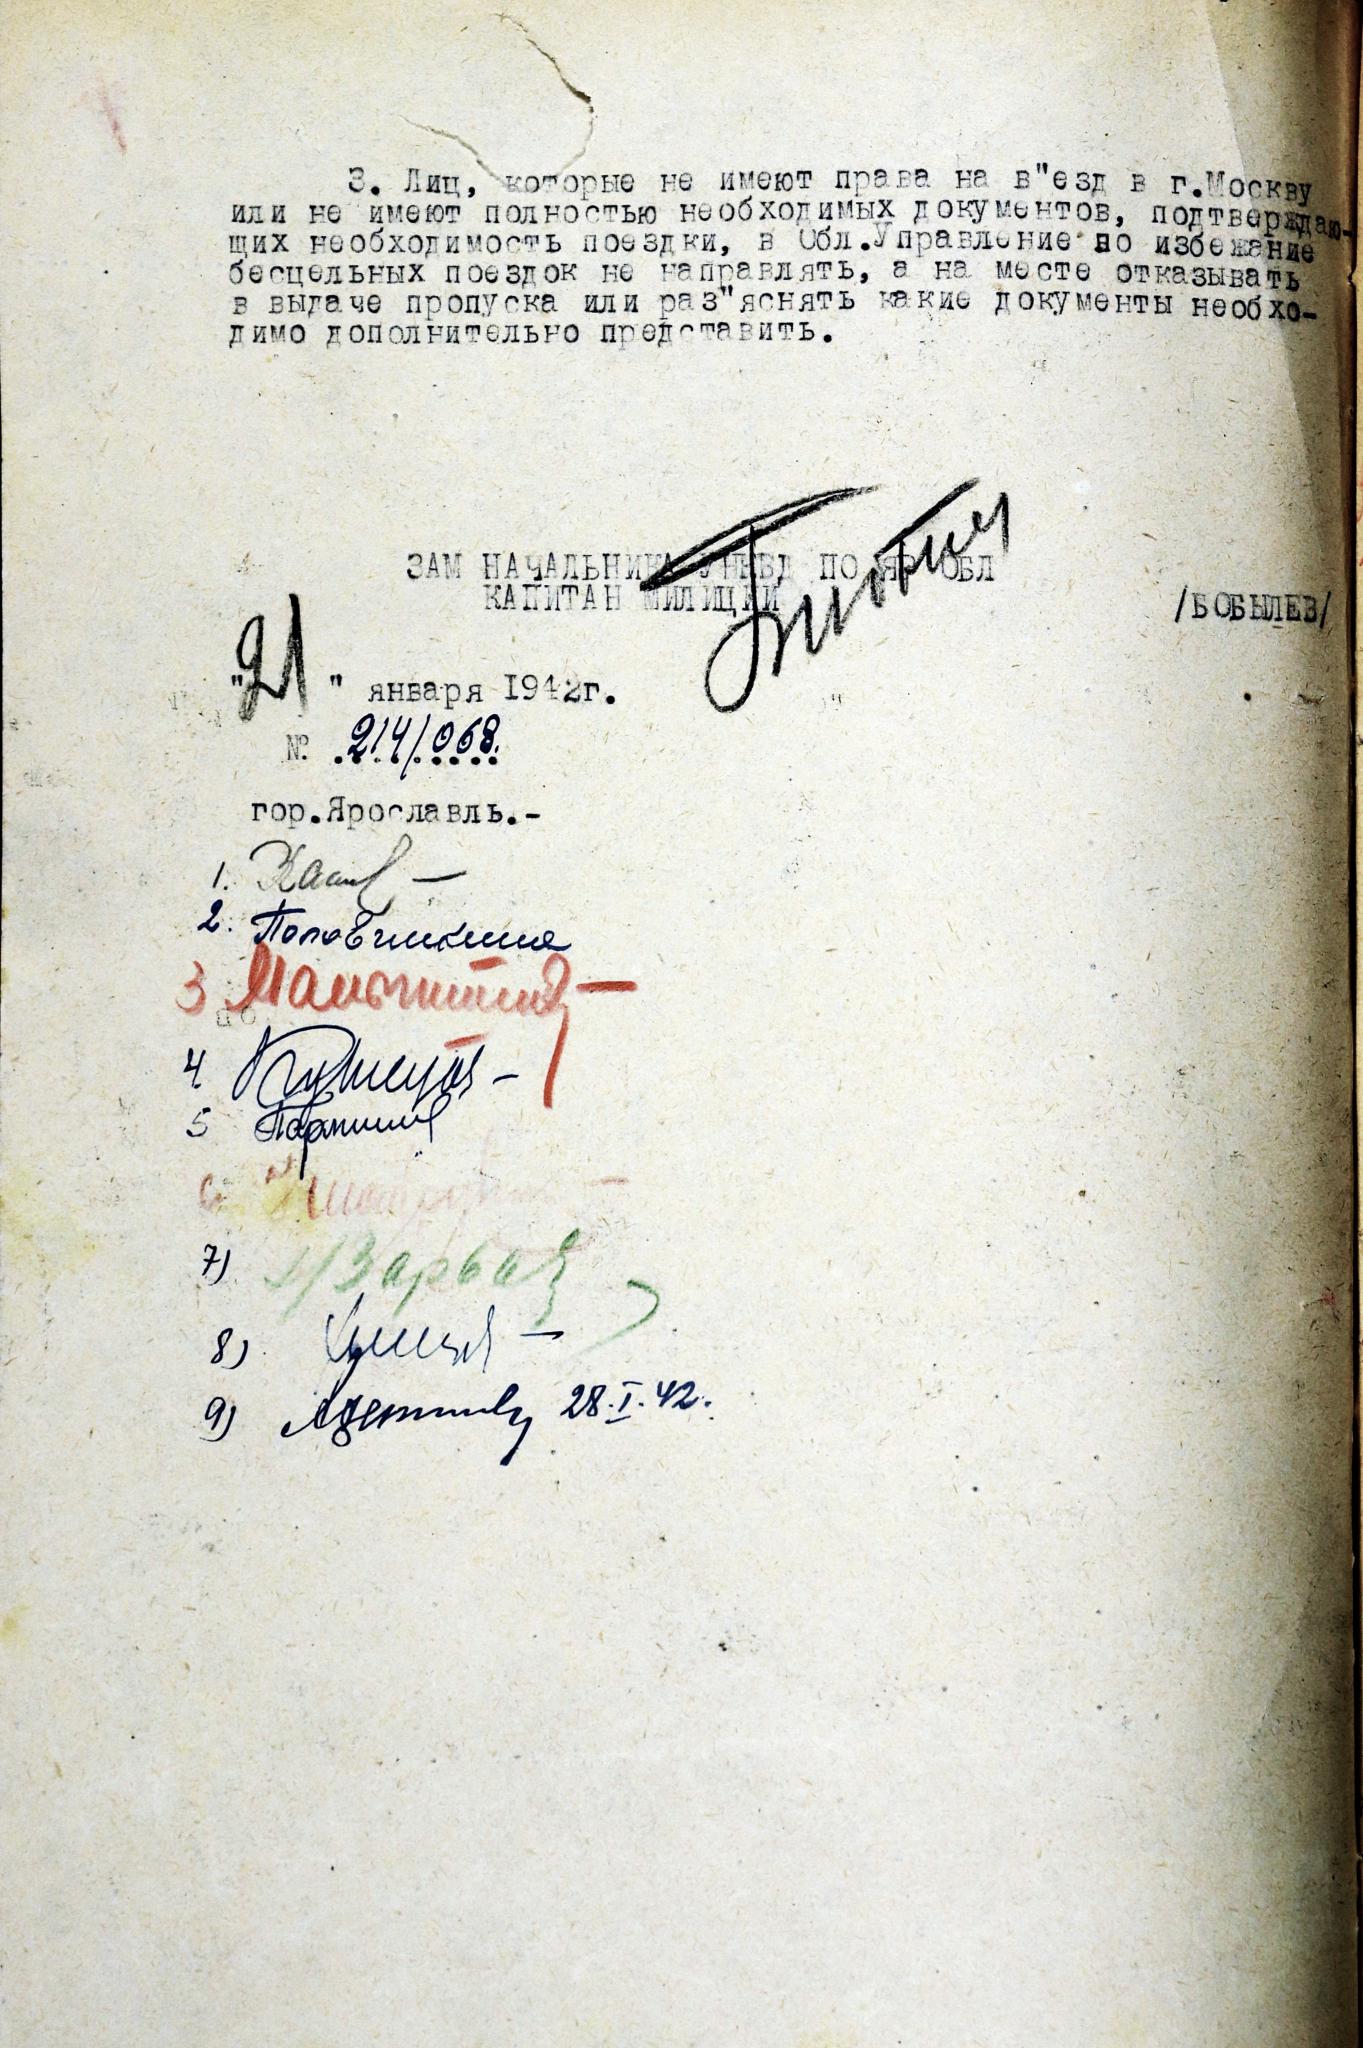 3. Лиц, которые не имеют права на в"езд в г.Москву
или не имеют полностью необходимых документов, подтверждаю-
щих необходимость поездки, в Обл.Управление во избежание
бесцельных поездок не направлять, а на месте отказывать
в выдаче пропуска или раз"яснять какие документы необхо-
димо дополнительно представить.
ЗАМ НАЧАЛЬНИКА УНКВД ПО ЯР ОБЛ
КАПИТАН МИЛИЦИИ
/БОБЫЛЕВ/
"21" января 1942г.
№ 214/068.
гор.Ярославль.-
1.
2.
3
4.
5
6
7)
8)
9) 28.I.42.